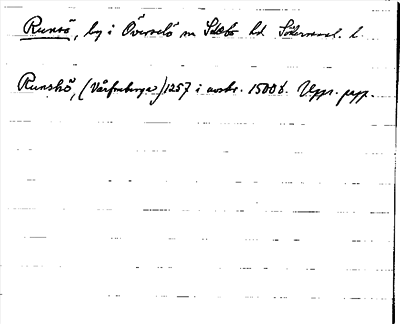 Runsö, by i Överselö sn Selebo hd Södermanl. l.
Runshö, (Vårfruberga) 1257 i avskr. 1500 b. Upps. papp.